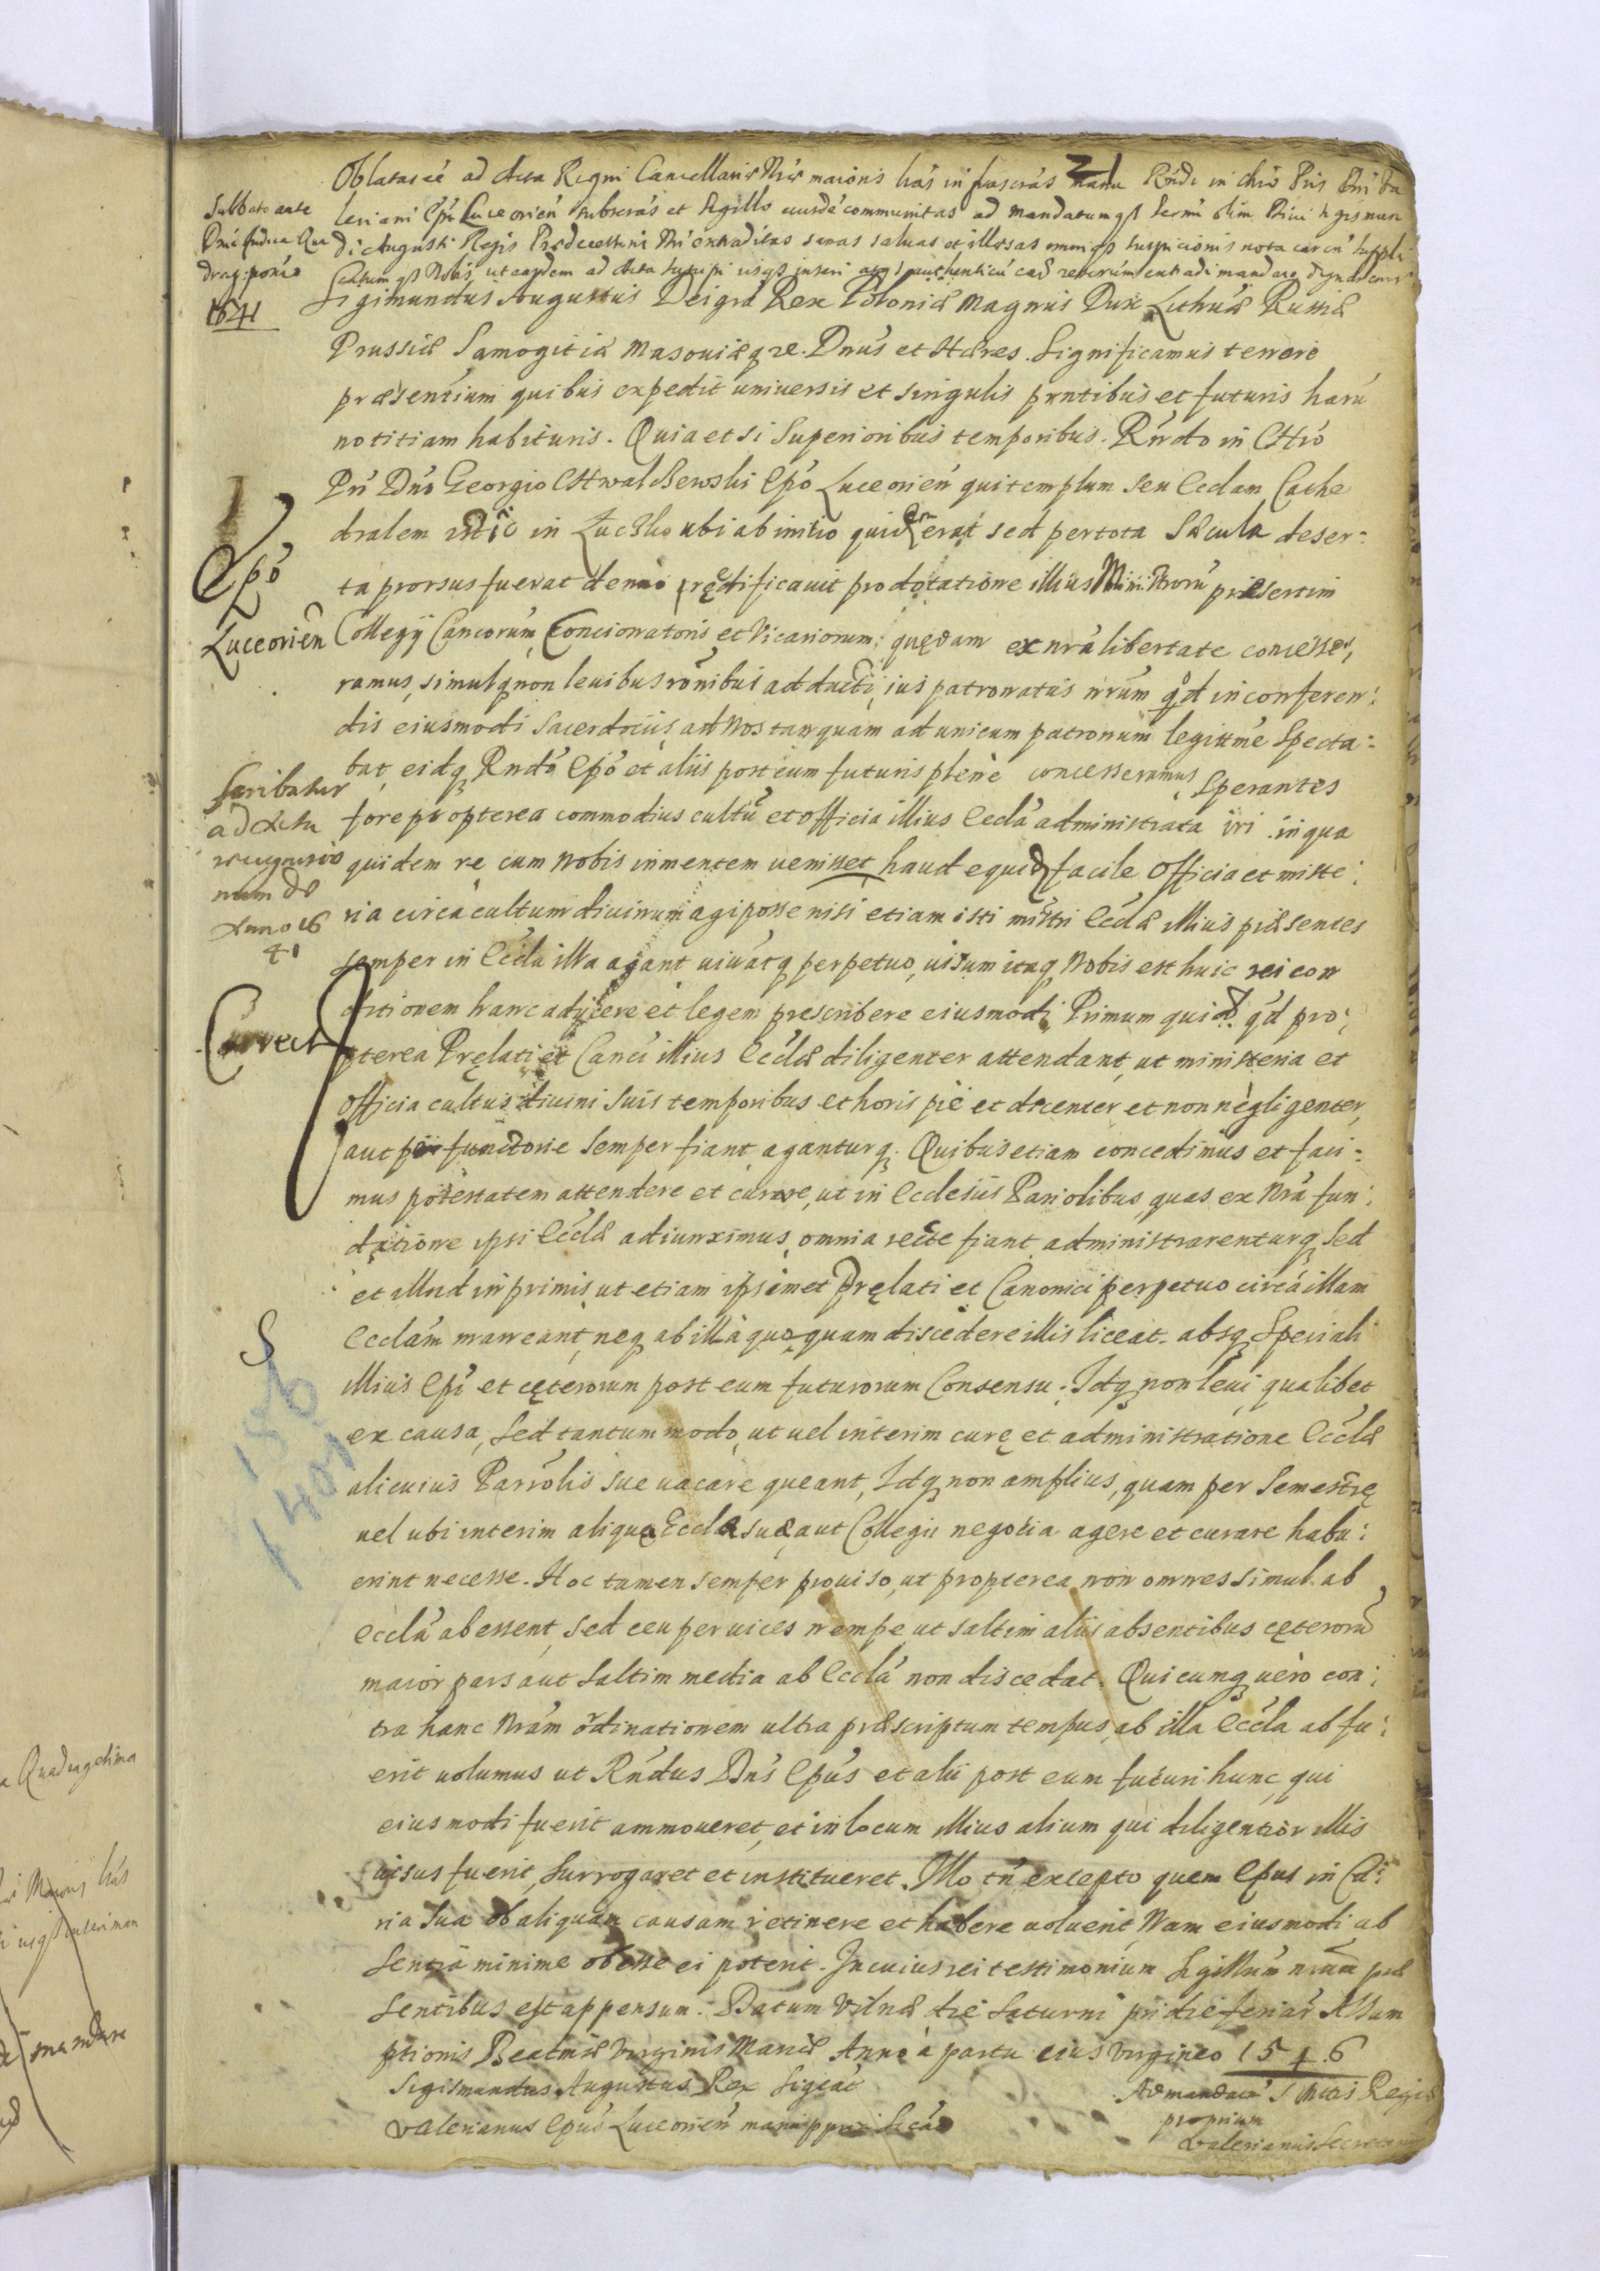 21
Oblatas ee ad Acta Regni Cancellariæ Nræ maioris lras infrascras manu Rndi in Chro Pris Dni Va
leriani Epi Luceorien subscras et sigillo eiusde communitas ad mandatumq Sermi olim Divi Sigismun
di Augusti Regis Prædecessoris Nri extraditas sanas salvas et illæsas omniq suspicionis nota caren suppli
catumq Nobis, ut eaqdem ad Acta suscipi
Sabbato ante
Dnicam
drag: pxi
1641
Sigimundus Augustus Dei gra Rex Poloniæ Magnus Dux Lithuæ Russiæ
Prussiæ Samogitiæ Masouiæq ze. Dnus et Hæres. Significamus tenore
præsentium quibus expedit uniuersis et singulis pntibus et futuris haru
notitiam habituris. Quia etsi Superioribus temporibus. Rndo in Chro
Pri Dno Georgio Chwalczewski Epo Luceorien qui templum seu Ecclam Cathe
dralem in Luczko ubi ab initio quid erat sed per tota Sæcula deser:
ta prorsus fuerat denuo reędificauit pro dotatione illius Ministroru præsertim
Epo
Luceorien
Collegij Cancorum, Concionatoris et Vicariorum, quędam ex nra libertate concesse,
ramus, simulq non leuibus ronibus adducti, ius patronatus nrum qd in conferen:
dis eiusmodi Sacerdocijs, ad Nos tanquam ad unicum patronum legitime Specta:
bat, eidq Rndo Epo et aliis post eum futuris plene concesseramus, Sperantes
Scribatur
ad Acta
Anno 16
41
fore propterea commodius cultu et officia illius Eccla administrata iri. in qua
quidem re cum Nobis in mentem uenisset haud equid facile officia et miste:
ria circa cultum diuinum agi posse nisi etiam isti mistri Ecclæ illius præsentes
semper in Eccla illa agant uiuatq perpetuo, uisum itaq Nobis est huic rei con
ditionem hanc adijcere et legem prescribere eiusmodi Primum quid. qd pro:
Correct
pterea Pręlati et Canci illius Ecclæ diligenter attendant, ut ministeria et
officia cultus diuini Suis temporibus et horis pie et decenter, et non negligenter,
aut perfunctorie Semper fiant, aganturq. Quibus etiam concedimus et faci:
mus potestatem attendere et curare, ut in Ecclesiis Parrolibus, quas ex Nra fun:
datione ipsi Ecclæ adiunximus, omnia recte fiant, administrarenturq Sed
et illud in primis, ut etiam ipsimet Pręlati et Canonici perpetuo circa illam
Ecclam maneant, neq ab illa quoquam discedere illis liceat. absq Speciali
S
186
1401
illius Epi et ceterorum post eum futurorum Consensu. Idq non leui, qualibet
ex causa, Sed tantummodo, ut uel interim curę et administratione Ecclæ
alicuius Parrolis sue uacare queant, Idq non amplius, quam per Semestrę
uel ubi interim aliqua Ecclæ suæ, aut Collegii negotia agere et curare habu:
erint necesse. Hoc tamen semper prouiso, ut propterea non omnes simul ab
eccla abessent, sed ceu per uices nempe, ut saltim aliis absentibus cęteroru
maior pars aut Saltim media ab Eccla non discedat. Quicunq uero con:
tra hanc Nram ordinationem ultra præscriptum tempus, ab illa Eccla abfu:
erit uolumus ut Rndus Dns Epus et alii post eum futuri hunc, qui
eiusmodi fuerit ammoueret, et in locum illius alium qui diligentior illis
uisus fuerit, Surrogaret et institueret. Illo tn excepto quem Epus in Cu:
ria Sua ob aliquam causam retinere et habere uoluerit Nam eiusmodi ab
Sentia minime obesse ei poterit. In cuius rei testimonium Sigillum nrum præ
Sentibus est appensum. Datum Vilnæ die Saturni pridie feriar Assum
ptionis Beatmæ Virginis Mariæ Anno a partu eius Virgineo 1546
Sigismundus Augustus Rex
Valerianus Epus Luceorien manu ppria
Ad mandatu S Mtis Regiæ
proprium
Valerianus Secretarius
a Quadragesima
Maioris lras
mandare